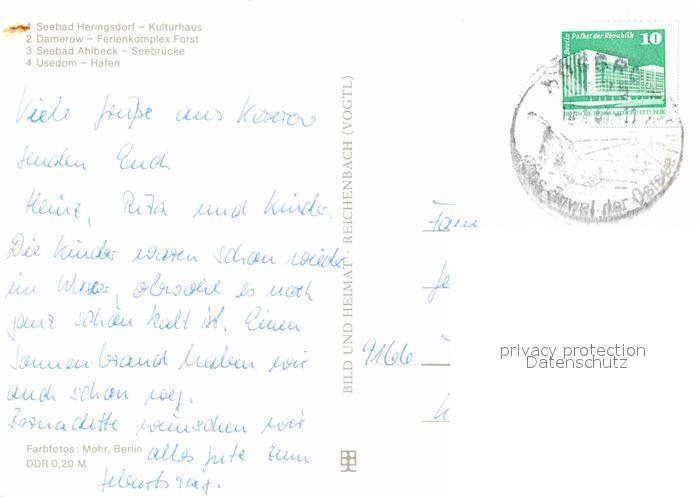 1 Seebad Heringsdorf – Kulturhaus
2 Damerow – Ferienkomplex Forst
3 Seebad Ahlbeck – Seebrücke
4 Usedom – Hafen
Viele Grüße aus Koserow
senden Euch
Heinz, Rita und Kinder.
Die Kinder waren schon wieder
im Wasser, obwohl es noch
ganz schön kalt ist. Einen
Sonnenbrand haben wir
auch schon weg.
Bernadette wünschen wir
alles gute zum
Geburtstag.
Farbfotos: Mohr, Berlin
DDR 0,20 M
BILD UND HEIMAT REICHENBACH (VOGTL)
Berlin Palast der Republik
10
DEUTSCHE DEMOKRATISCHE REPUBLIK
der Ostsee
Fam
9166
privacy protection
Datenschutz